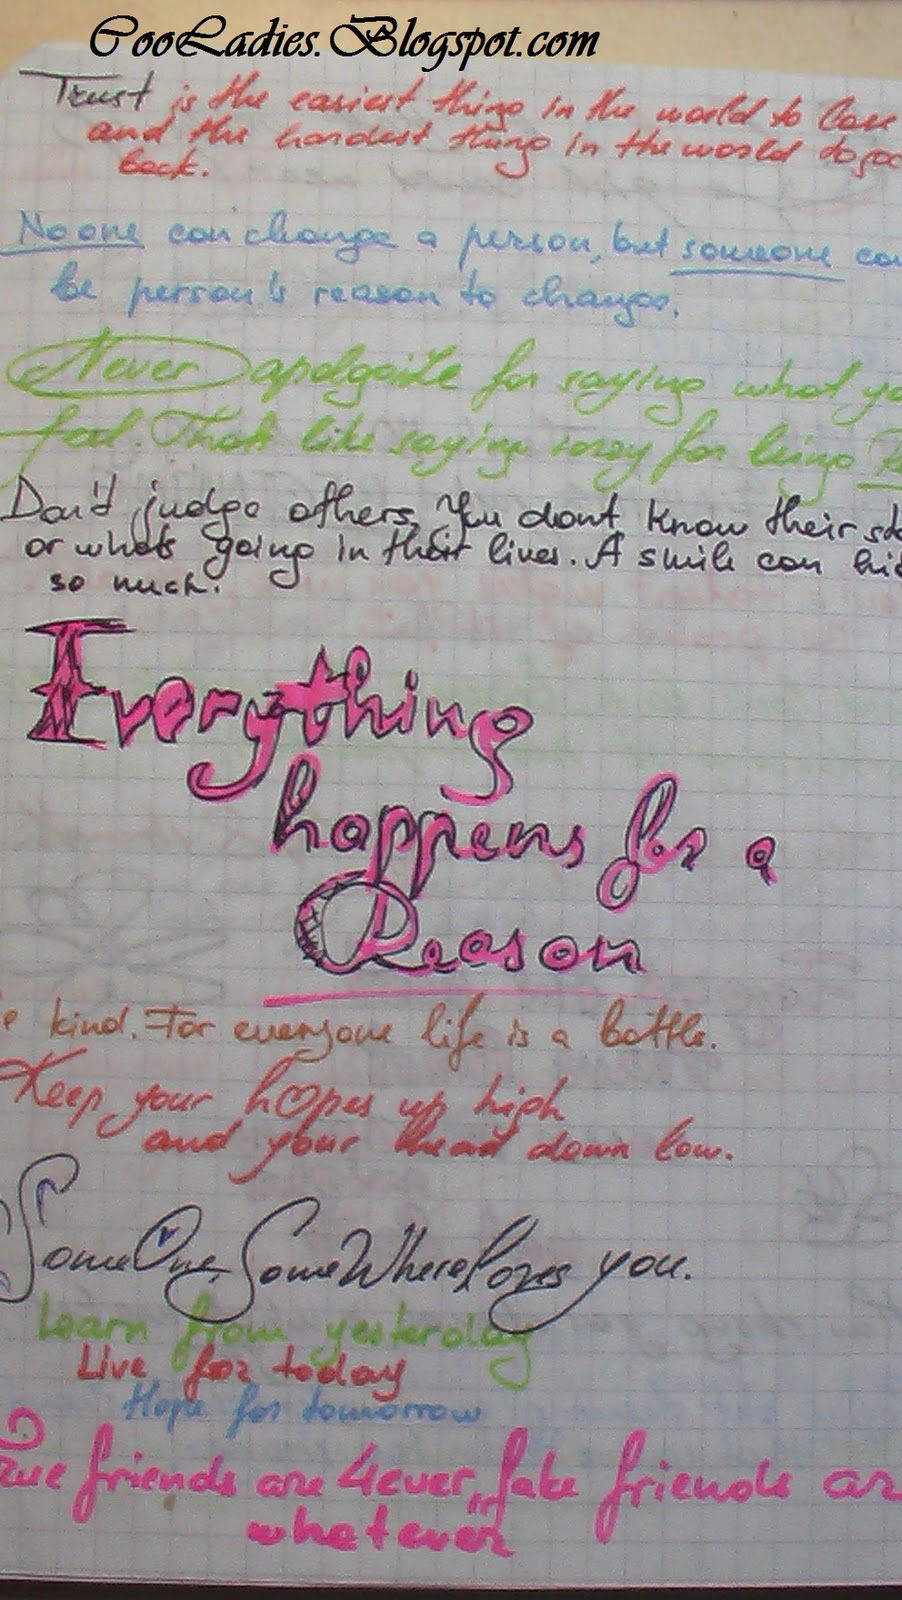 CooLadies.Blogspot.com
Trust is the easiest thing in the world to lose
and the hardest thing in the world to
back.
No one can change a person, but someone can
be person's reason to change.
Never apologize for saying what
feel. That like saying sorry for being
Don'd judge others. You dont know their
or whats going in their lives. A smile can
so much.
Everything
happens for a
Reason
kind. For everyone life is a battle.
Keep your hopes up high
and your head down low.
SomeOne, SomeWhere loves you.
Learn from yesterday
Live for today
Hope for tomorrow
friends are 4ever, fake friends
whatever